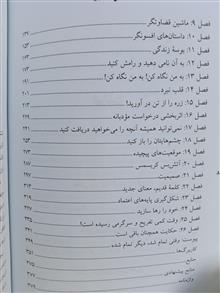 فصل ۹: ماشین قضاوتگر ۱۳۷
فصل ۱۰: داستان‌های افسونگر
فصل ۱۱: بوسهٔ زندگی
فصل ۱۲: به آن نامی دهید و رامش کنید
فصل ۱۳: به من نگاه کن! به من نگاه نکن!
فصل ۱۴: قلب نبرد
فصل ۱۵: زره را از تن در آورید!
فصل ۱۶: اثربخشی درخواست مؤدبانه
فصل ۱۷: نمی‌توانید همیشه آنچه را می‌خواهید دریافت کنید
فصل ۱۸: چشم‌هایتان را باز کنید
فصل ۱۹: موقعیت‌های پیچیده
فصل ۲۰: آتش‌بس کریسمس
فصل ۲۱: صمیمیت
فصل ۲۲: کلمهٔ قدیم، معنای جدید
فصل ۲۳: شکل‌گیری پایه‌های اعتماد
فصل ۲۴: خود را رها سازید
فصل ۲۵: وقت کمی تفریح و سرگرمی رسیده است!
فصل ۲۶: حکایت همچنان باقی است
پیوست: وقتی تمام شد، دیگر تمام شده
کاربرگ‌ها
منابع
منابع پیشنهادی
واژه‌نامه